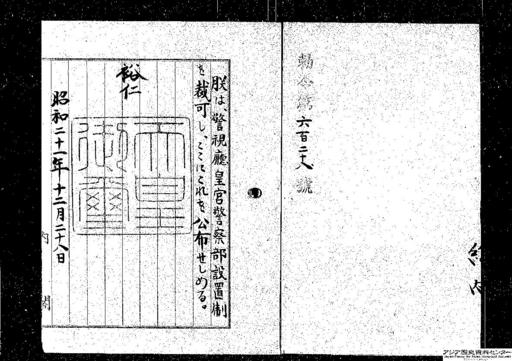 勅令第六百二十八號
朕は、警視廳皇宮警察部設置制
を裁可し、ここにこれを公布せしめる。
裕仁
天皇御璽
昭和二十一年十二月二十八日
内閣
アジア歴史資料センター